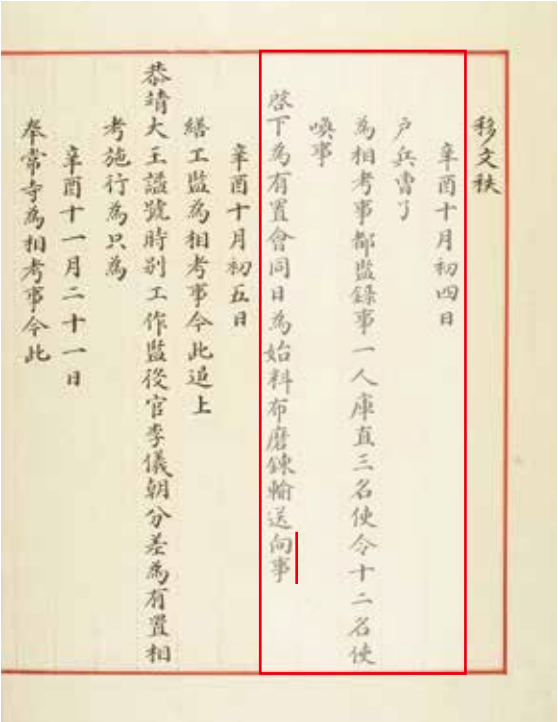 移文秩
辛酉十月初四日
戶兵曺了
為相考事都監錄事一人庫直三名使令十二名使
喚事
啓下為有置會同日為始料布磨鍊輸送向事
辛酉十月初五日
繕工監為相考事今此追上
恭靖大王謚號時別工作監役官李儀朝分差為有置相
考施行為只為
辛酉十一月二十一日
奉常寺為相考事今此